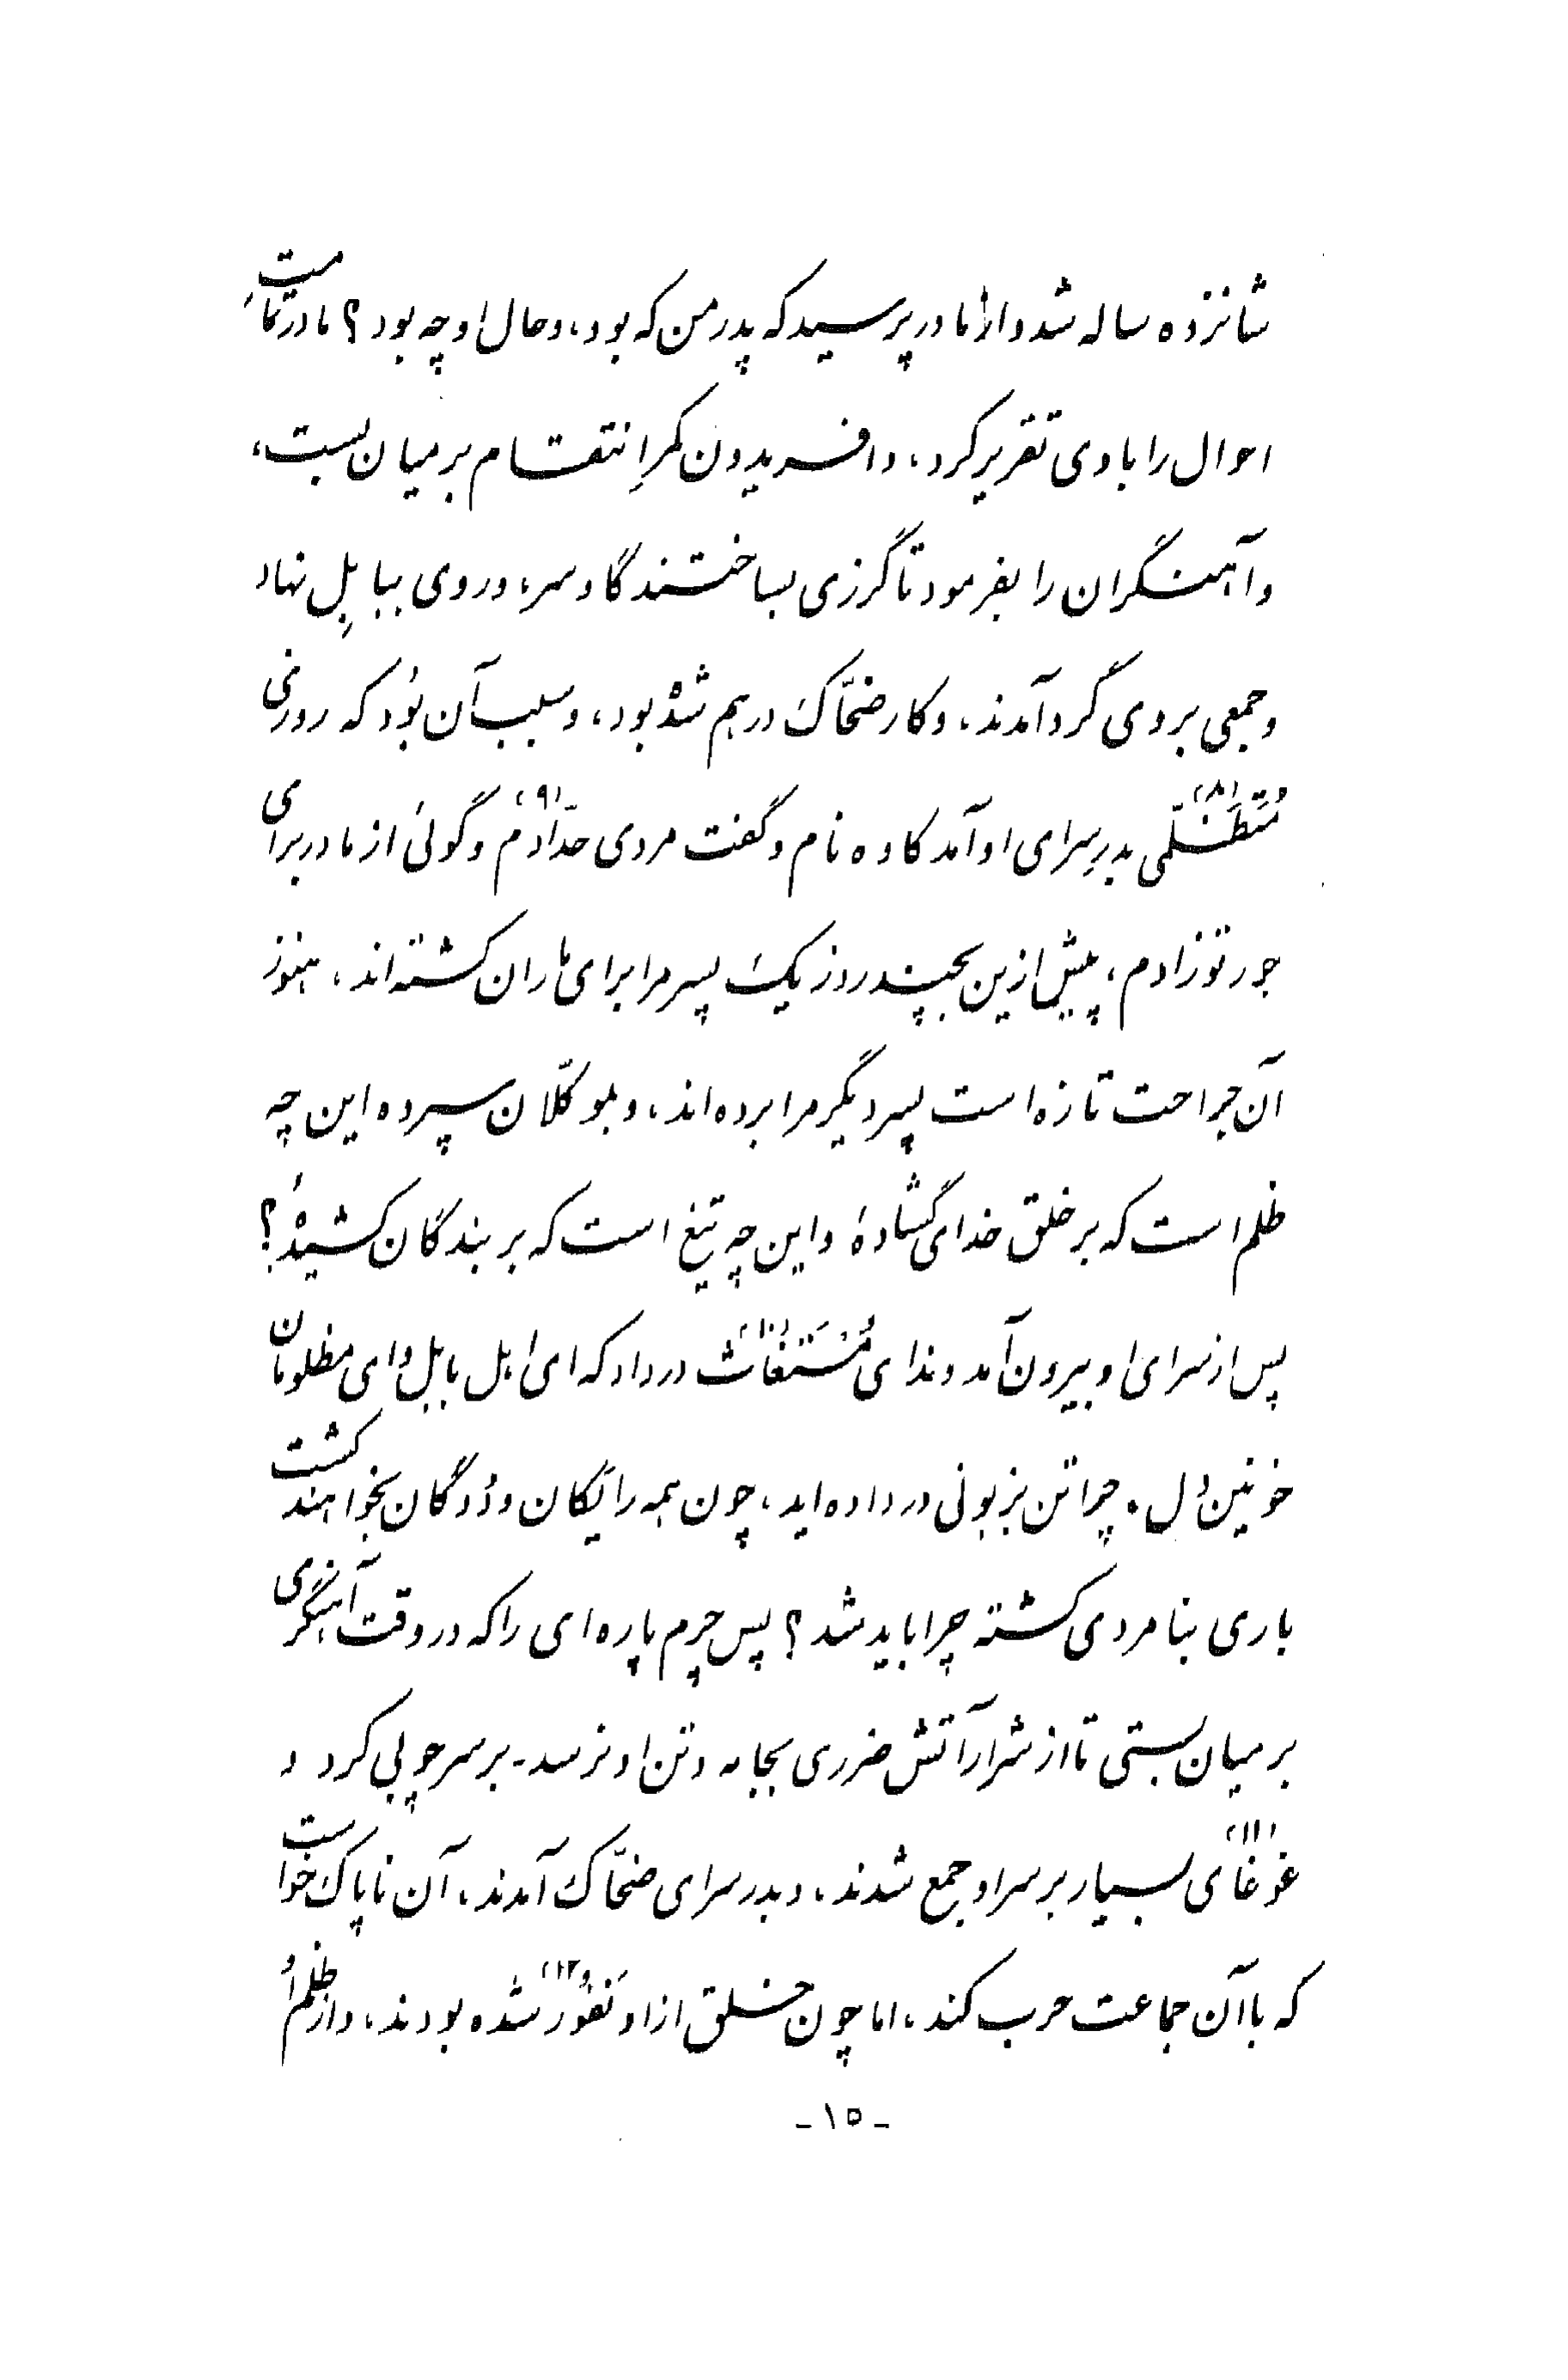 شانزده ساله شد و از مادر پرسید که پدر من که بود، و حال او چه بود؟ مادر تمامت
احوال را با وی تقریر کرد، و افریدون کمرِ انتقام بر میان بست،
و آهنگران را بفرمود تا گرزی بساختند گاو سر، و روی ببابِل نهاد
و جمعی بر وی گرد آمدند، و کار ضحّاک در هم شدهٔ بود، و سبب آن بُود که روزی
مُتَظَلّمی (۸) بدرِ سرای او آمد کاوه نام و گفت مردی حدّادم (۹) و گوئی از مادر برای
جور تو زادم، پیش ازین بچند روز یک پسر مرا برای ماران کشته‌اند، هنوز
آن جراحت تازه است پسر دیگر مرا برده‌اند، و بموکّلان سپرده این چه
ظلم است که بر خلق خدای گشادهٔ و این چه تیغ است که بر بندگان کشیدهٔ؟
پس از سرای او بیرون آمد و ندای مُسْتَغاث (۱۰) در داد که ای اهل بابل و ای مظلومان
خونین دل. چرا تن بزبونی در داده‌اید، چون همه را یَکان و دُدگان بخواهند کشت
باری بنامردی کشته چرا باید شد؟ پس چرم پاره‌ای را که در وقت آهنگری
بر میان بستی تا از شرار آتش ضرری بجامه و تن او نرسد - بر سر چوبی کرد و
غوغای (۱۱) بسیار بر سر او جمع شدند، و بدر سرای ضحّاک آمدند، آن ناپاک خواست
که با آن جماعت حرب کند، اما چون خلق از او نَفُور (۱۲) شده بودند، و از ظلم اُو
- ۱۵ -